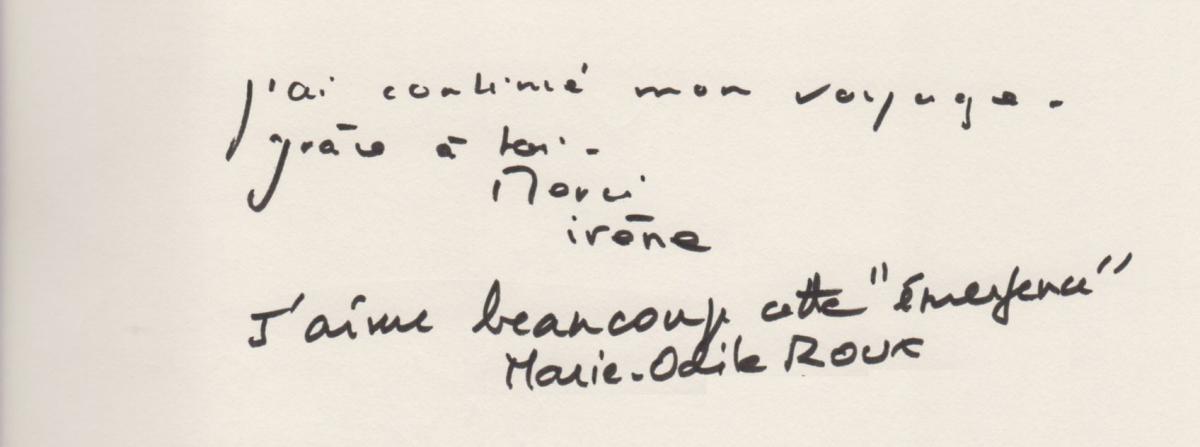 J'ai continué mon voyage.
grâce à toi.
Merci
irène
J'aime beaucoup cette "émergence"
Marie-Odile ROUX